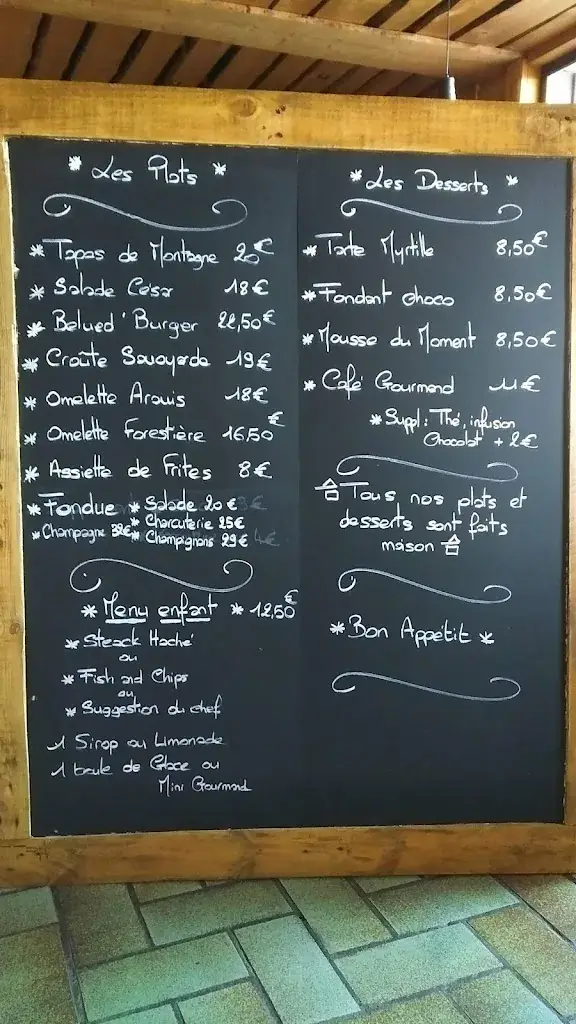 * Les Plats *
* Tapas de Montagne 20€
* Salade César 18€
* Belued'Burger 22,50€
* Croûte Savoyarde 19€
* Omelette Aravis 18€
* Omelette Forestière 16,50€
* Assiette de Frites 8€
* Fondue * Salade 20€
* Charcuterie 25€
* Champagne 32€ * Champignons 29€
* Menu enfant * 12,50€
* Steack Haché
ou
* Fish and Chips
ou
* Suggestion du chef
1 Sirop ou Limonade
1 boule de Glace ou
Mini Gourmand
* Les Desserts *
* Tarte Myrtille 8,50€
* Fondant choco 8,50€
* Mousse du Moment 8,50€
* Café Gourmand 11€
* Suppl: Thé, infusion
Chocolat + 2€
Tous nos plats et
desserts sont faits
maison
* Bon Appétit *